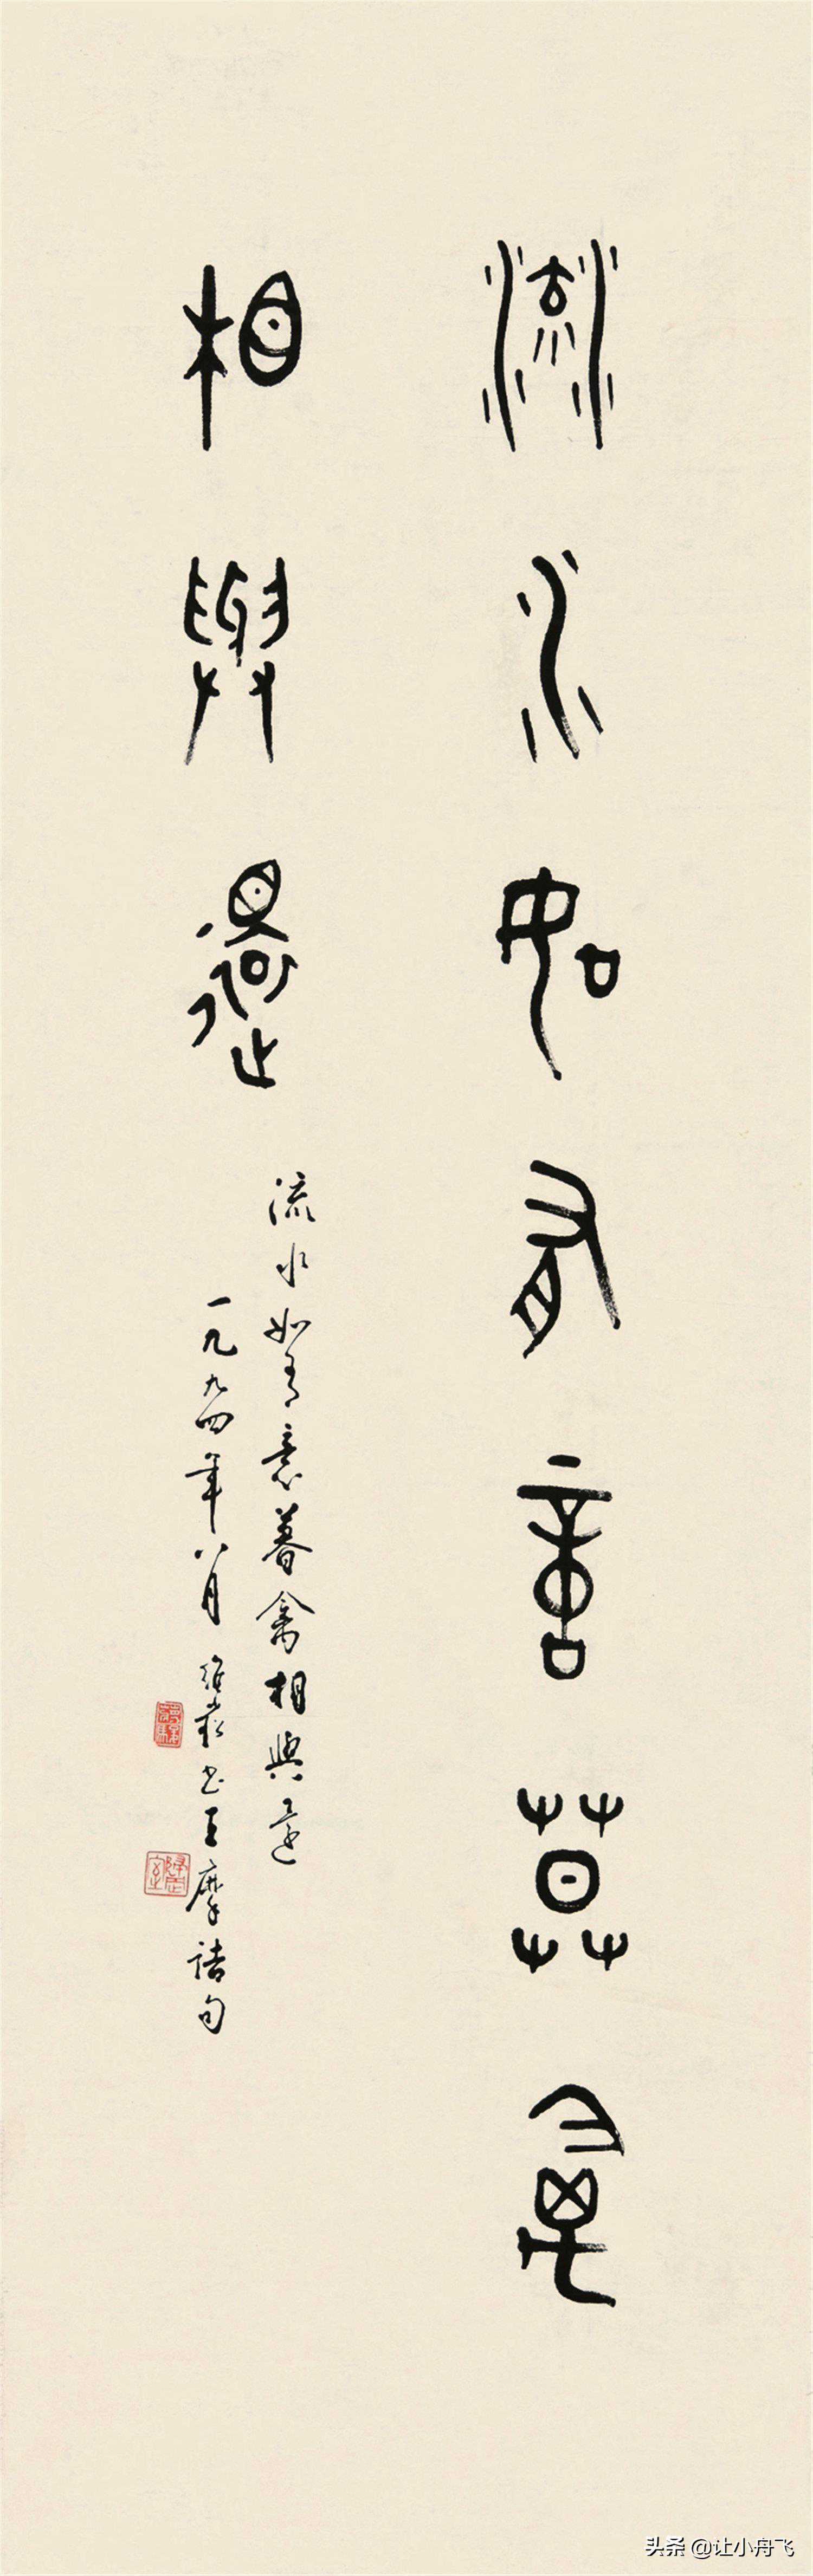 流水如有意莫禽
相與還
流水如有意暮禽相與還
一九九四年八月 維崧書王摩詰句
头条 @让小舟飞